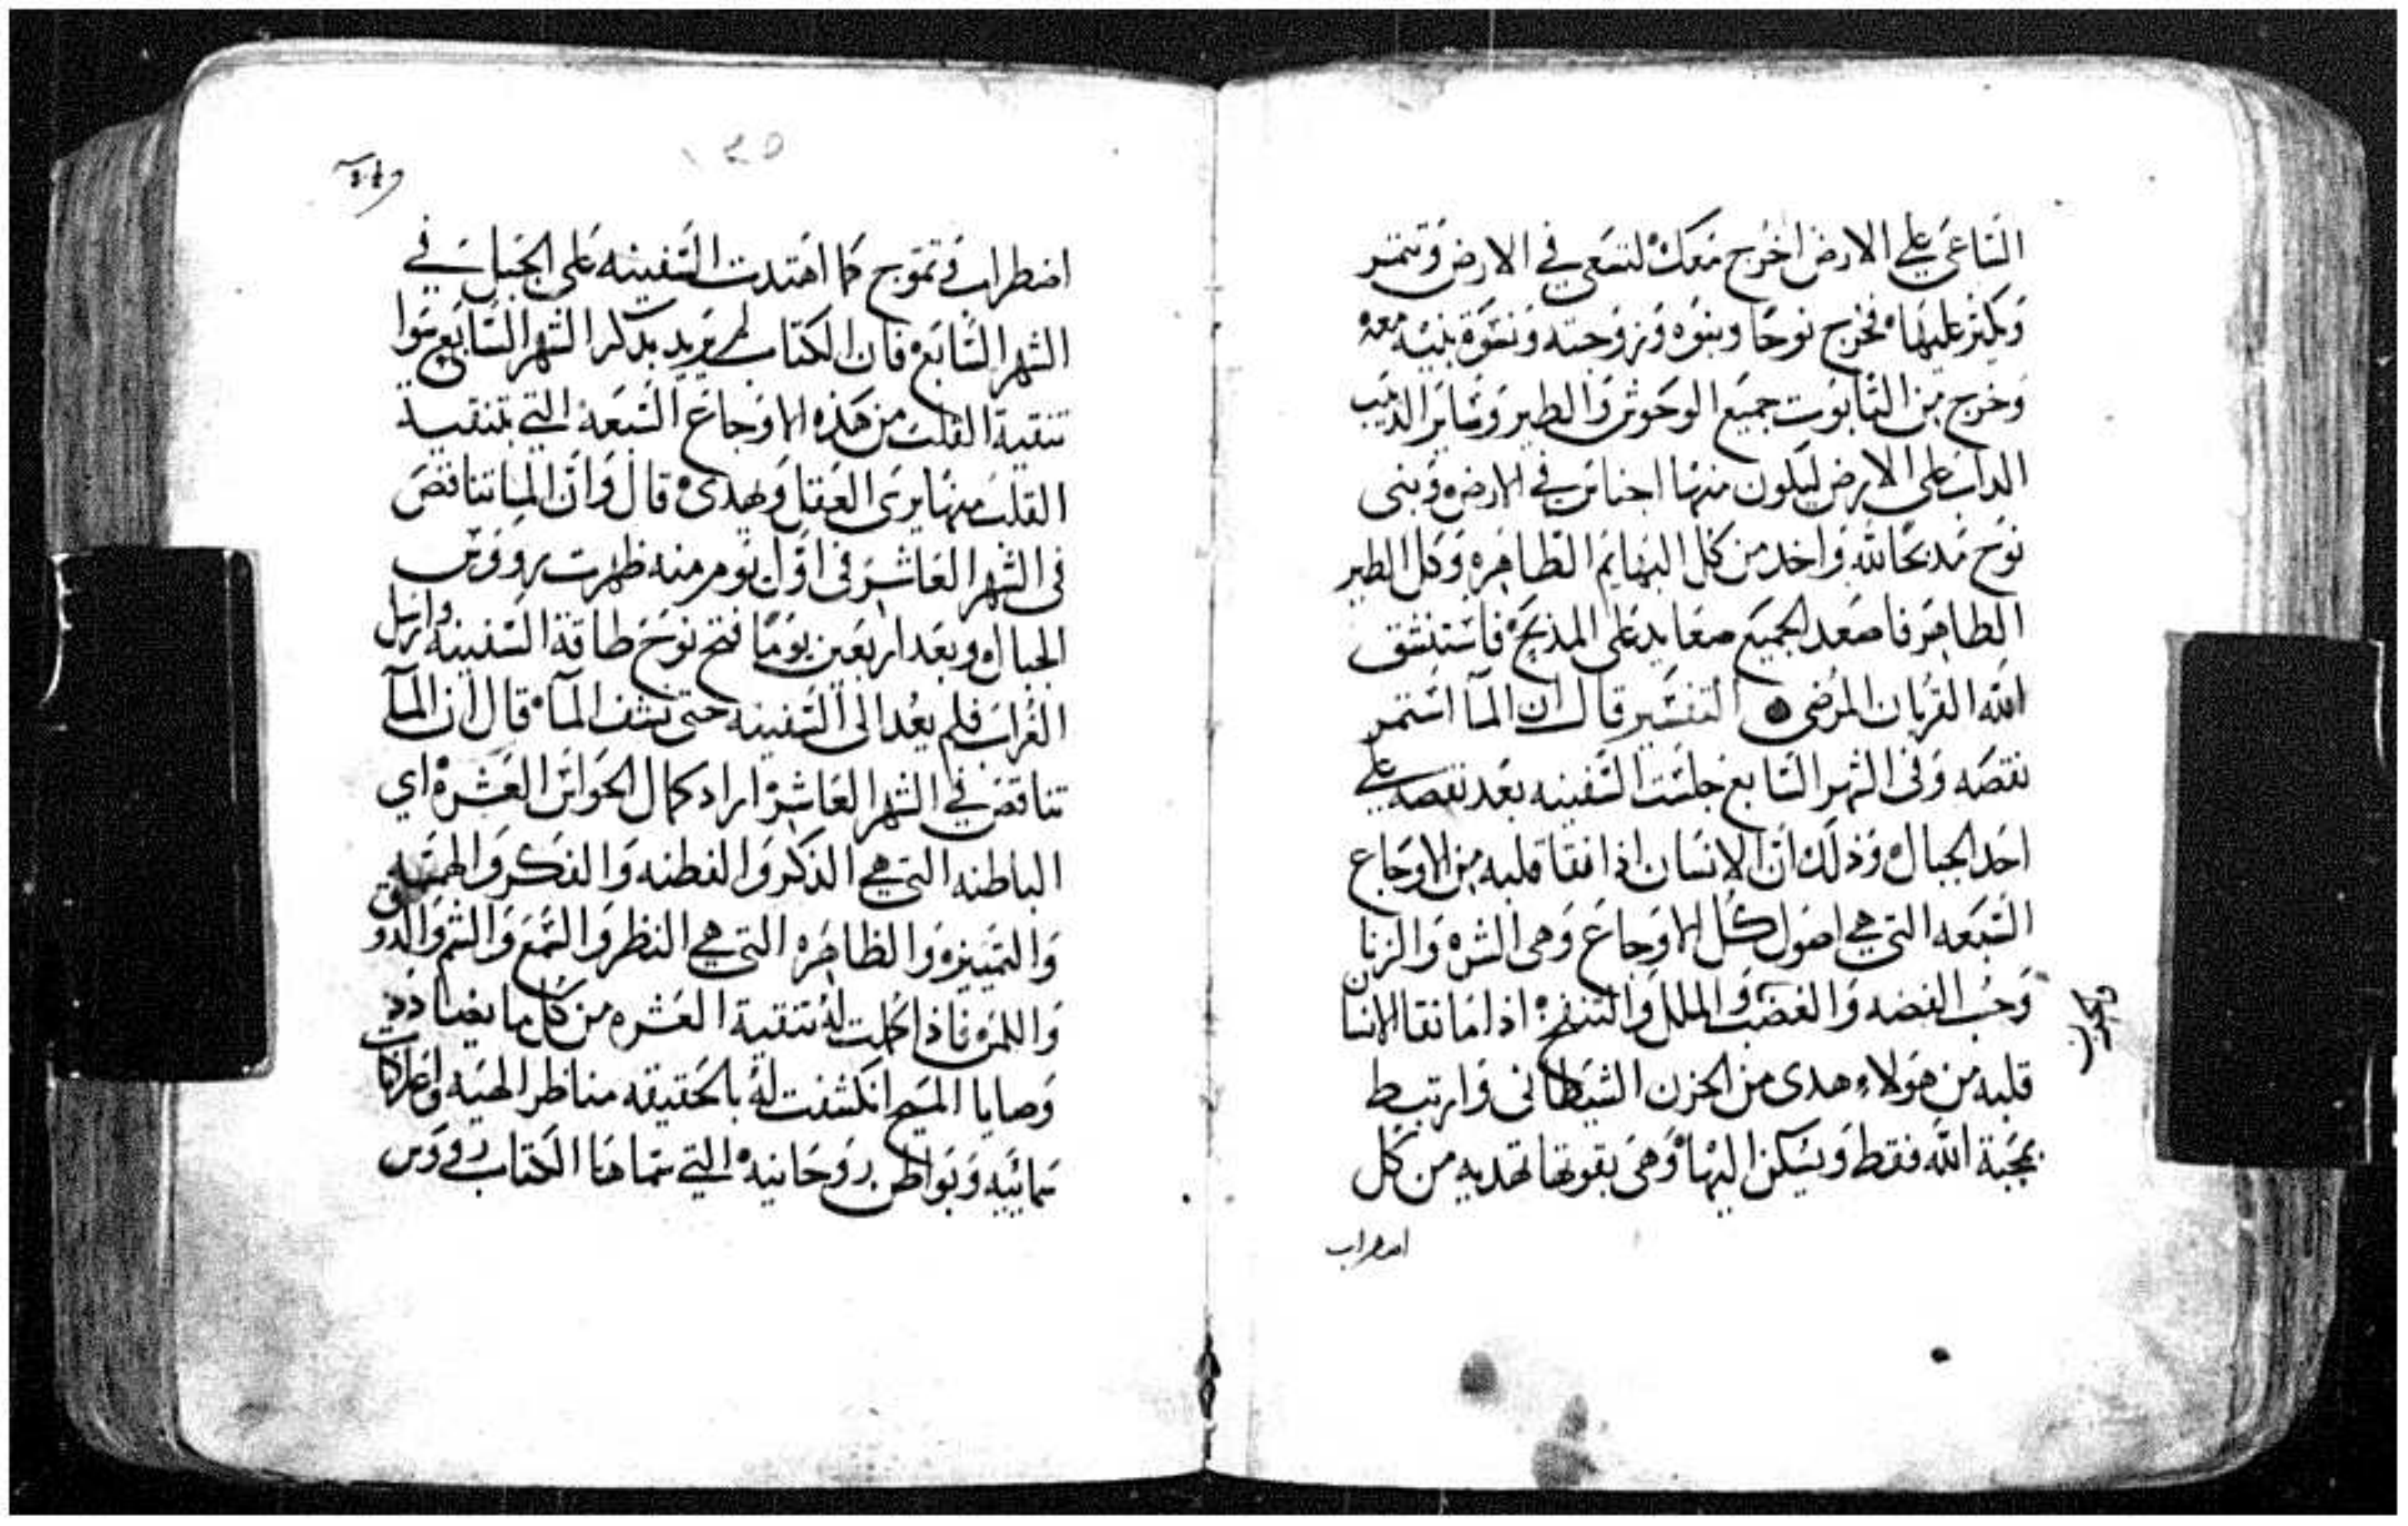 الساعي علي الارض اخرج معك لتسعي في الارض وتنمر
وتكثر عليها فخرج نوحا وبنوه وزوجته ونسوة بنيه معه
وخرج من التابوت جميع الوحوش والطير وساير الدبيب
الداب على الارض ليكون منها اجناس في الارض وبنى
نوح مدبحا لله واخد من كل البهايم الطاهره وكل الطير
الطاهر فاصعد الجميع صعايد على المذبح فاستنشق
الله القربان المرضي التفسير قال ان الما استمر
نقصه وفى الشهر السابع جلست السفينه بعد نقصه علي
احد الجبال وذلك ان الانسان اذا نقا قلبه من الاوجاع
السبعه التي هي اصول كل الاوجاع وهى الشره والزنا
وحب الفضه والغضب والملل والتنفخ اذا ما نقا الانسان
قلبه من هولاء هدى من الحزن الشيطانى وارتبط
بمحبة الله فقط ويسكن اليها وهى بقوتها تهديه من كل
اضطراب
اضطراب وتموج كما اهتدت السفينه على الجبل في
الشهر السابع فان الكتاب لم يريد بدكر الشهر السابع سوا
تنقية القلب من هذه الاوجاع السبعه التي بتنقية
القلب منها يرى العقل ويهدى قال وان الما تناقص
فى الشهر العاشر فى اول يوم منه ظهرت رووس
الجبال وبعد اربعين يوما فتح نوح طاقة السفينه وارسل
الغراب فلم يعد الى السفينه حتى نشف المآ قال ان المآ
تناقص في الشهر العاشر اراد كمال الحواس العشره اي
الباطنه التي هي الذكر والفطنه والفكر والهمه
والتمييزه والظاهره التي هي النظر والسمع والشم والدوق
واللمس فاذا كملت له تنقية العشره من كل ما يضادد
وصايا المسيح انكشفت له بالحقيقه مناظر الهيه وادراكات
سمائيه وبواطن روحانيه التي سماها الكتاب رووس